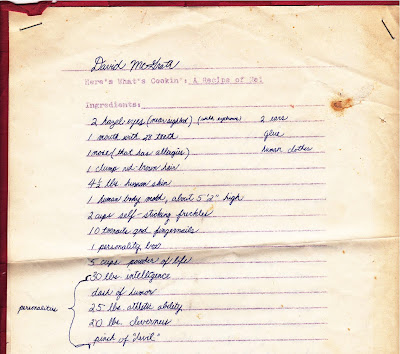 David McGrath
Here's What's Cookin': A Recipe of Me!
Ingredients:
2 hazel eyes (nearsighted) (with eyebrows) 2 ears
1 mouth with 28 teeth glue
1 nose (that has allergies) human clothes
1 clump red-brown hair
4½ lbs human skin
1 human body mold, about 5'2" high
2 cups self-sticking freckles
10 toenails and fingernails
1 personality box
5 cups powder of life
30 lbs intelligence
dash of humor
personalities
25 lbs. athletic ability
20 lbs. cleverness
pinch of "devil"